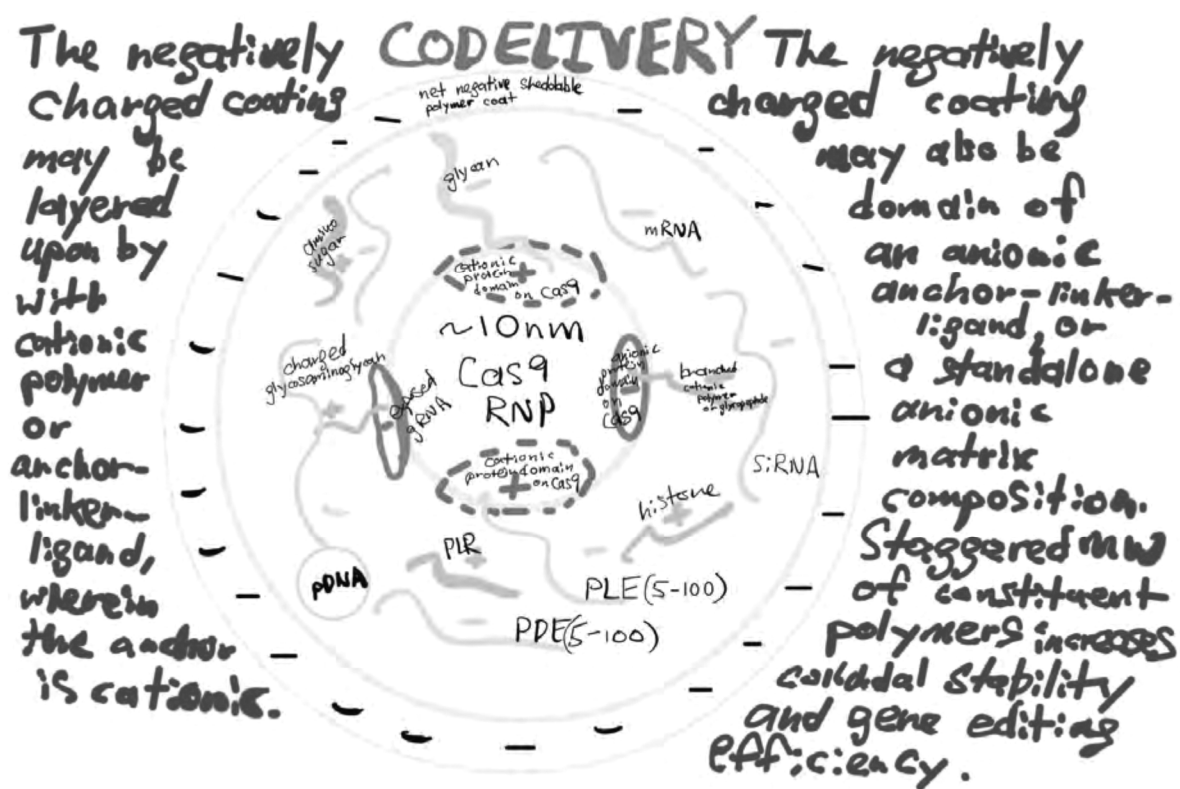 CODELIVERY
The negatively
charged coating
may be
layered
upon by
with
cationic
polymer
or
anchor-
linker-
ligand,
wherein
the anchor
is cationic.
net negative sheddable
polymer coat
glycan
mRNA
amino
sugar
cationic
protein
domain
on Cas9
~10nm
Cas9
RNP
charged
glycosaminoglycan
exposed
gRNA
anionic
protein
domain
on
Cas9
branched
cationic
polymer
or glycopeptide
cationic
protein domain
on Cas9
siRNA
histone
PLR
pDNA
PLE(5-100)
PDE(5-100)
The negatively
charged coating
may also be
domain of
an anionic
anchor-linker-
ligand, or
a standalone
anionic
matrix
composition.
Staggered MW
of constituent
polymers increases
colloidal stability
and gene editing
efficiency.